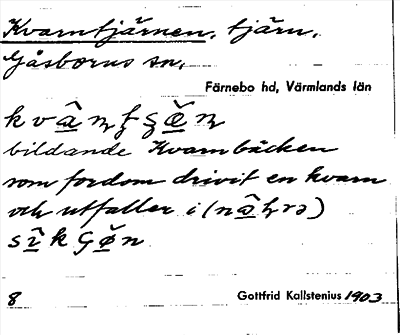 Kvarntjärnen, tjärn,
Gåsborns sn,
Färnebo hd, Värmlands län
bildande Kvarnbäcken
som fordom drivit en kvarn
och utfaller i
8 Gottfrid Kallstenius 1903